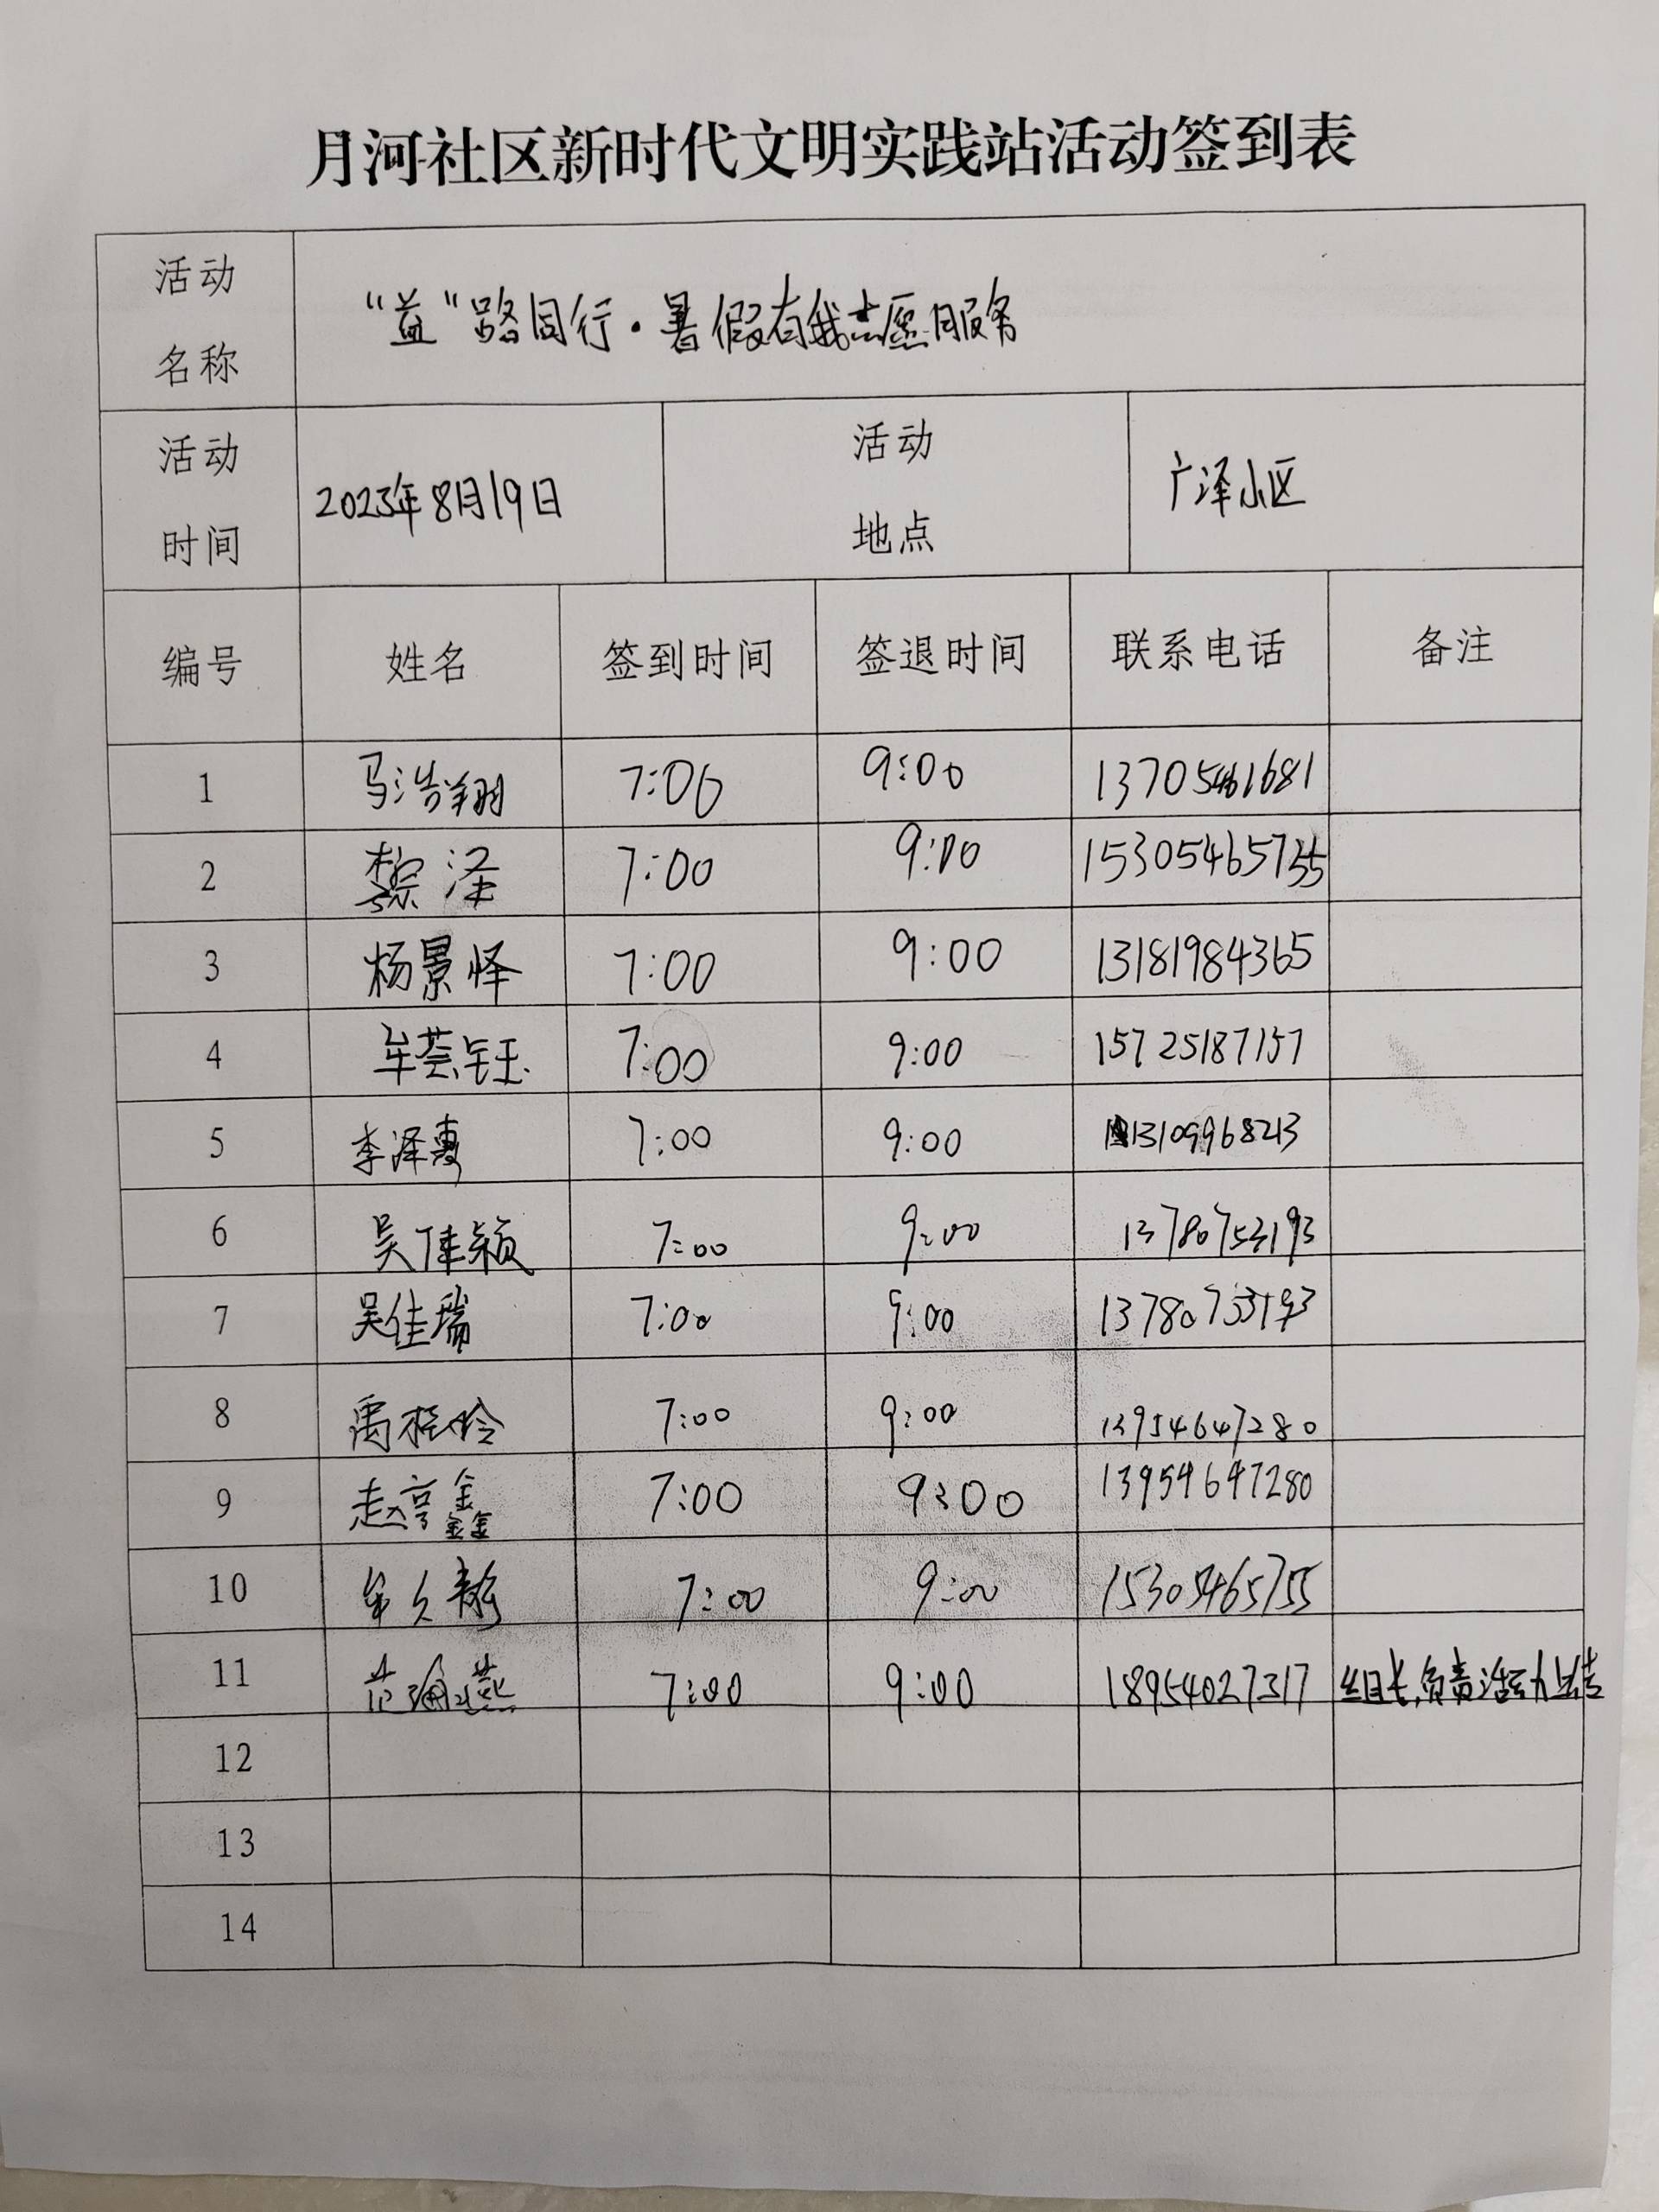 月河社区新时代文明实践站活动签到表
活动名称 “益”路同行·暑假有我志愿服务
活动时间 2023年8月19日 活动地点 广泽小区
编号 姓名 签到时间 签退时间 联系电话 备注
1 马浩翔 7:00 9:00 13705461681
2 泽 7:00 9:00 15305465755
3 杨景怿 7:00 9:00 13181984365
4 牟芸钰 7:00 9:00 15725187157
5 李泽惠 7:00 9:00 13109968213
6 吴佳颖 7:00 9:00 13780753193
7 吴佳瑞 7:00 9:00 13780753193
8 禹 7:00 9:00 13954647280
9 赵亨鑫 7:00 9:00 13954647280
10 牟久 7:00 9:00 15305465755
11 范海燕 7:00 9:00 18954027317 组长,负责活动
12
13
14